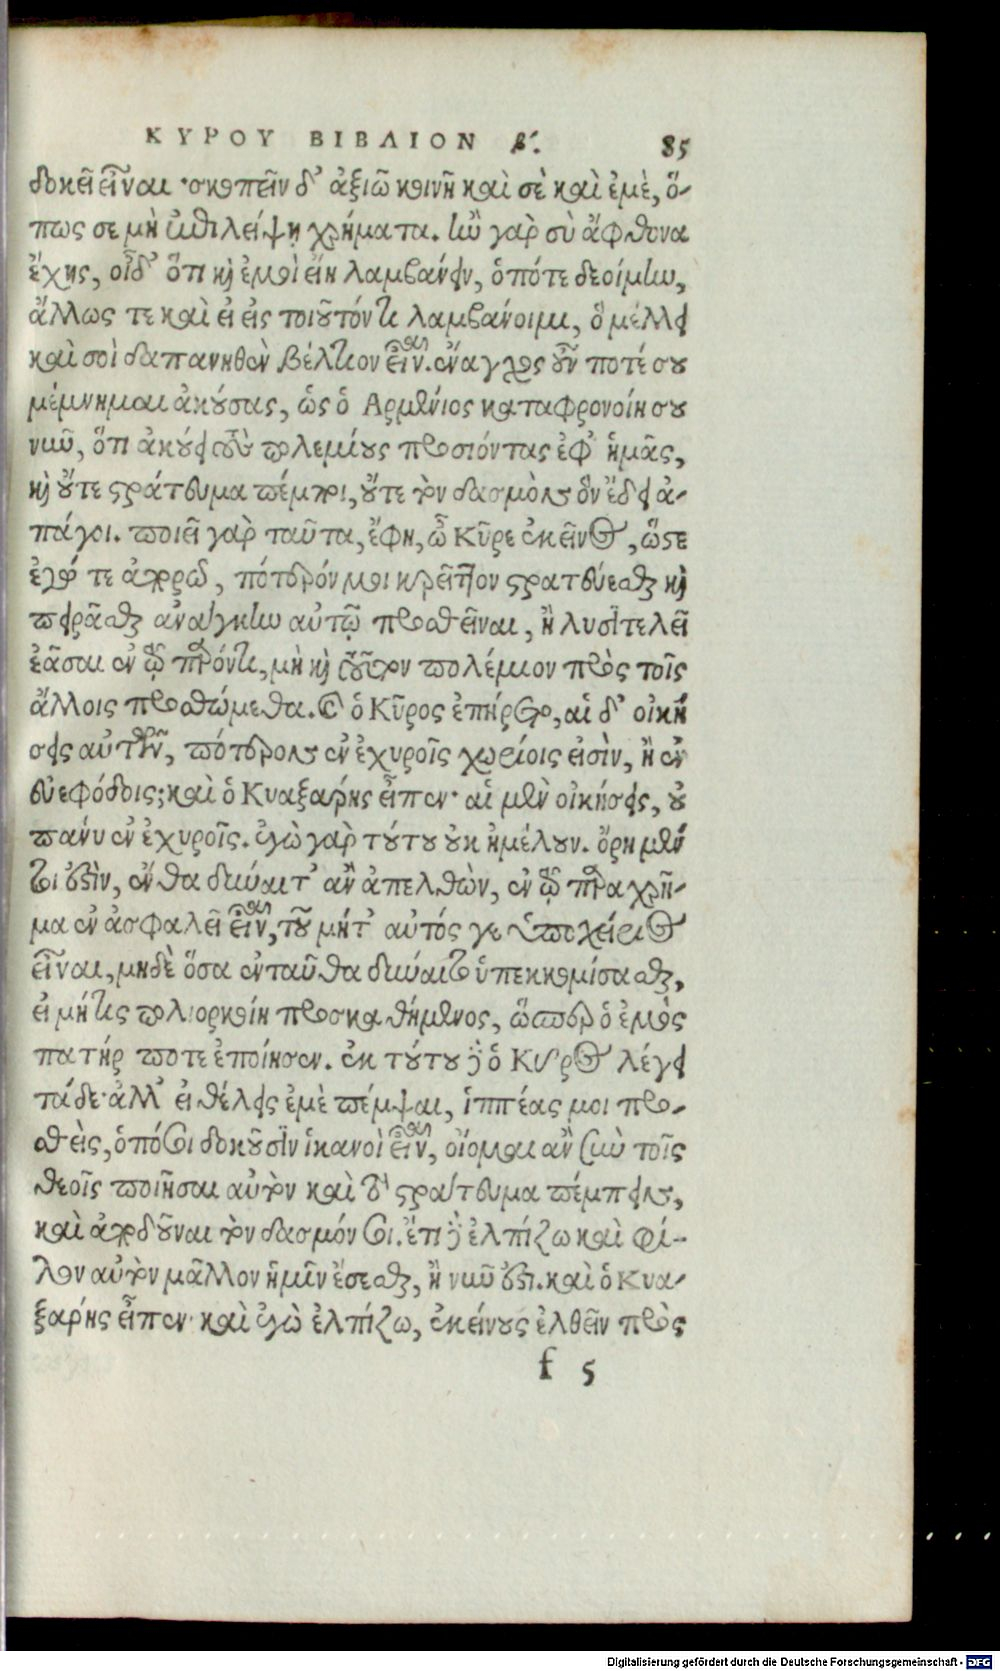 ΚΥΡΟΥ ΒΙΒΛΙΟΝ β΄. 85
δοκεῖ εἶναι· σκοπεῖν δ' ἀξιῶ κοινῆ καὶ σὲ καὶ ἐμὲ, ὅ-
πως σε μὴ ἐπιλείψῃ χρήματα. ἢν γὰρ σὺ ἄφθονα
ἔχῃς, οἶδ' ὅτι καὶ ἐμοὶ εἴη λαμβάνειν, ὁπότε δεοίμην,
ἄλλως τε καὶ εἰ εἰς τοιοῦτόν τι λαμβάνοιμι, ὃ μέλλει
καὶ σοὶ δαπανηθὲν βέλτιον εἶναι. ἔναγχος οὖν ποτέ σου
μέμνημαι ἀκούσας, ὡς ὁ Αρμένιος καταφρονοίη σου
νῦν, ὅτι ἀκούει τοὺς πολεμίους προσιόντας ἐφ' ἡμᾶς,
καὶ οὔτε στράτευμα πέμποι, οὔτε τὸν δασμὸν ὃν ἔδει ἀ-
πάγοι. ποιεῖ γὰρ ταῦτα, ἔφη, ὦ Κῦρε ἐκεῖνος, ὥστε
ἔγωγέ τε ἀπορῶ, πότερόν μοι κρεῖττον στρατεύεσθαι καὶ
πειρᾶσθαι ἀνάγκην αὐτῷ προσθεῖναι, ἢ λυσιτελεῖ
ἐᾶσαι ἐν τῷ παρόντι, μὴ καὶ τοῦτον πολέμιον πρὸς τοῖς
ἄλλοις προσθώμεθα. καὶ ὁ Κῦρος ἐπήρετο, αἱ δ' οἰκή
σεις αὐτῶν, πότερον ἐν ἐχυροῖς χωρίοις εἰσὶν, ἢ ἐν
εὐεφόδοις; καὶ ὁ Κυαξάρης εἶπεν· αἱ μὲν οἰκήσεις, οὐ
πάνυ ἐν ἐχυροῖς. ἐγὼ γὰρ τούτου οὐκ ἠμέλουν. ὄρη μέν
τοι ἐστὶν, ἔνθα δύναιτ' ἂν ἀπελθὼν, ἐν τῷ παραχρῆ-
μα ἐν ἀσφαλεῖ εἶναι, τοῦ μήτ' αὐτός γε ὑποχείριος
εἶναι, μηδὲ ὅσα ἐνταῦθα δύναιτο ὑπεκκομίσασθαι,
εἰ μή τις πολιορκοίη προσκαθήμενος, ὥσπερ ὁ ἐμὸς
πατήρ ποτε ἐποίησεν. ἐκ τούτου δὴ ὁ Κῦρος λέγει
τάδε· ἀλλ' εἰ θέλεις ἐμὲ πέμψαι, ἱππέας μοι προ-
σθεὶς, ὁπόσοι δοκοῦσιν ἱκανοὶ εἶναι, οἴομαι ἂν σὺν τοῖς
θεοῖς ποιῆσαι αὐτὸν καὶ τὸ στράτευμα πέμπειν,
καὶ ἀποδοῦναι τὸν δασμόν σοι. ἔτι δὲ ἐλπίζω καὶ φί-
λον αὐτὸν μᾶλλον ἡμῖν ἔσεσθαι, ἢ νῦν ἐστι. καὶ ὁ Κυα-
ξάρης εἶπεν· καὶ ἐγὼ ἐλπίζω, ἐκείνους ἐλθεῖν πρὸς
f 5
Digitalisierung gefördert durch die Deutsche Forschungsgemeinschaft - DFG